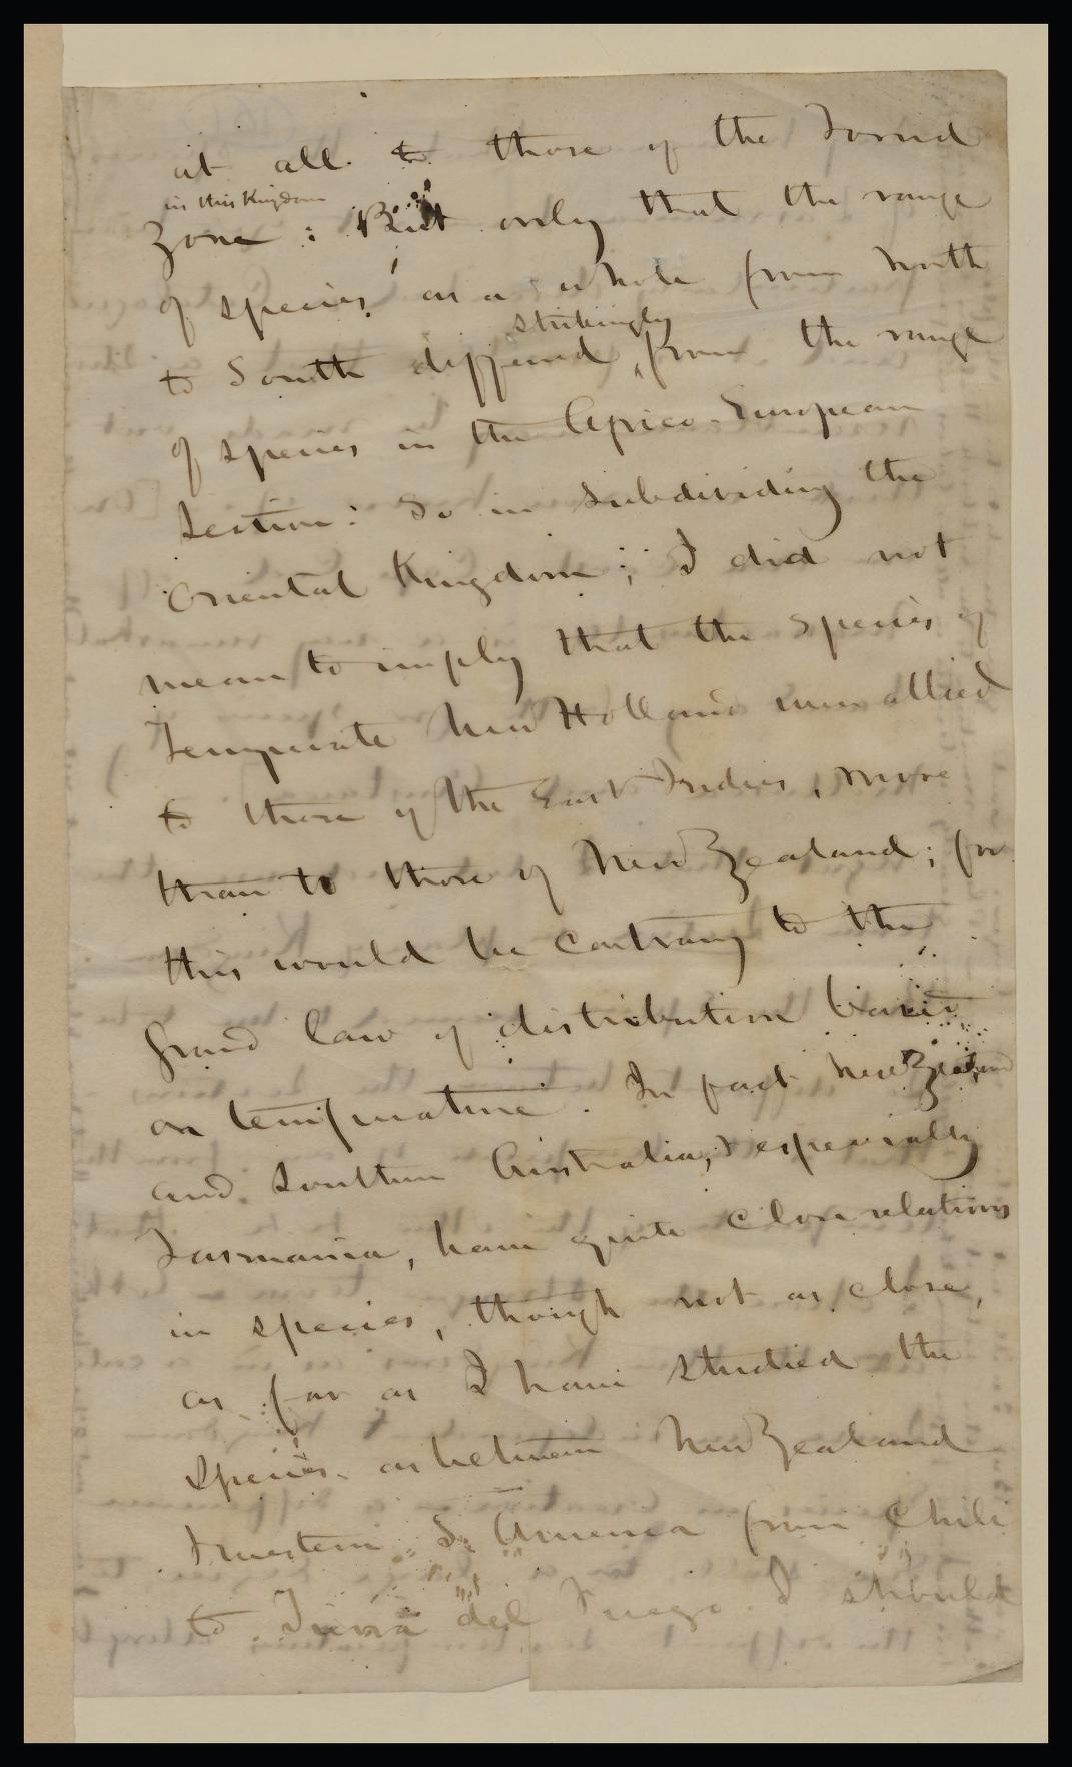 at all to those of the Torrid
in this Kingdom
Zone : But only that the range
of species, as a whole from North
strikingly
to South differed from the range
of species in the Africo-European
Section : So in subdividing the
Oriental Kingdom ; I did not
mean to imply that the species of
Temperate New Holland were allied
to those of the East Indies, more
than to those of New Zealand ; for
this would be contrary to the
grand law of distribution based
on temperature. In fact New Zealand
and Southern Australia, & especially
Tasmania, have quite close relations
in species, though not as close,
as far as I have studied the
species as between New Zealand
& western S. America from Chili
to Tierra del Fuego. I should